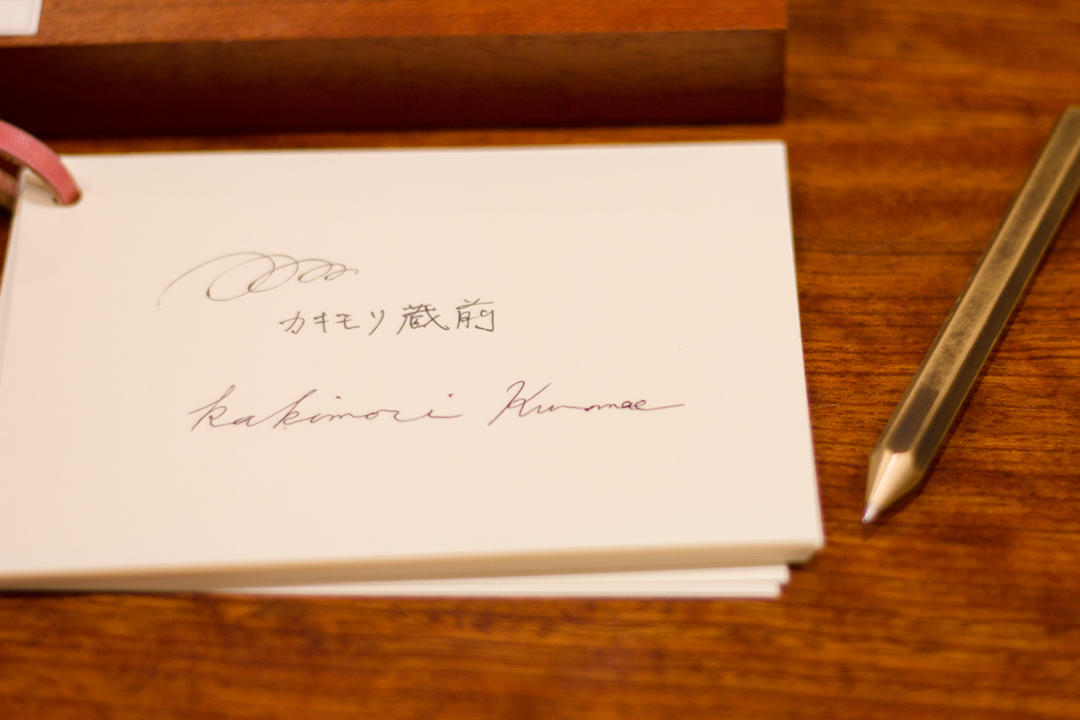 カキモリ蔵前
kakimori Kuramae